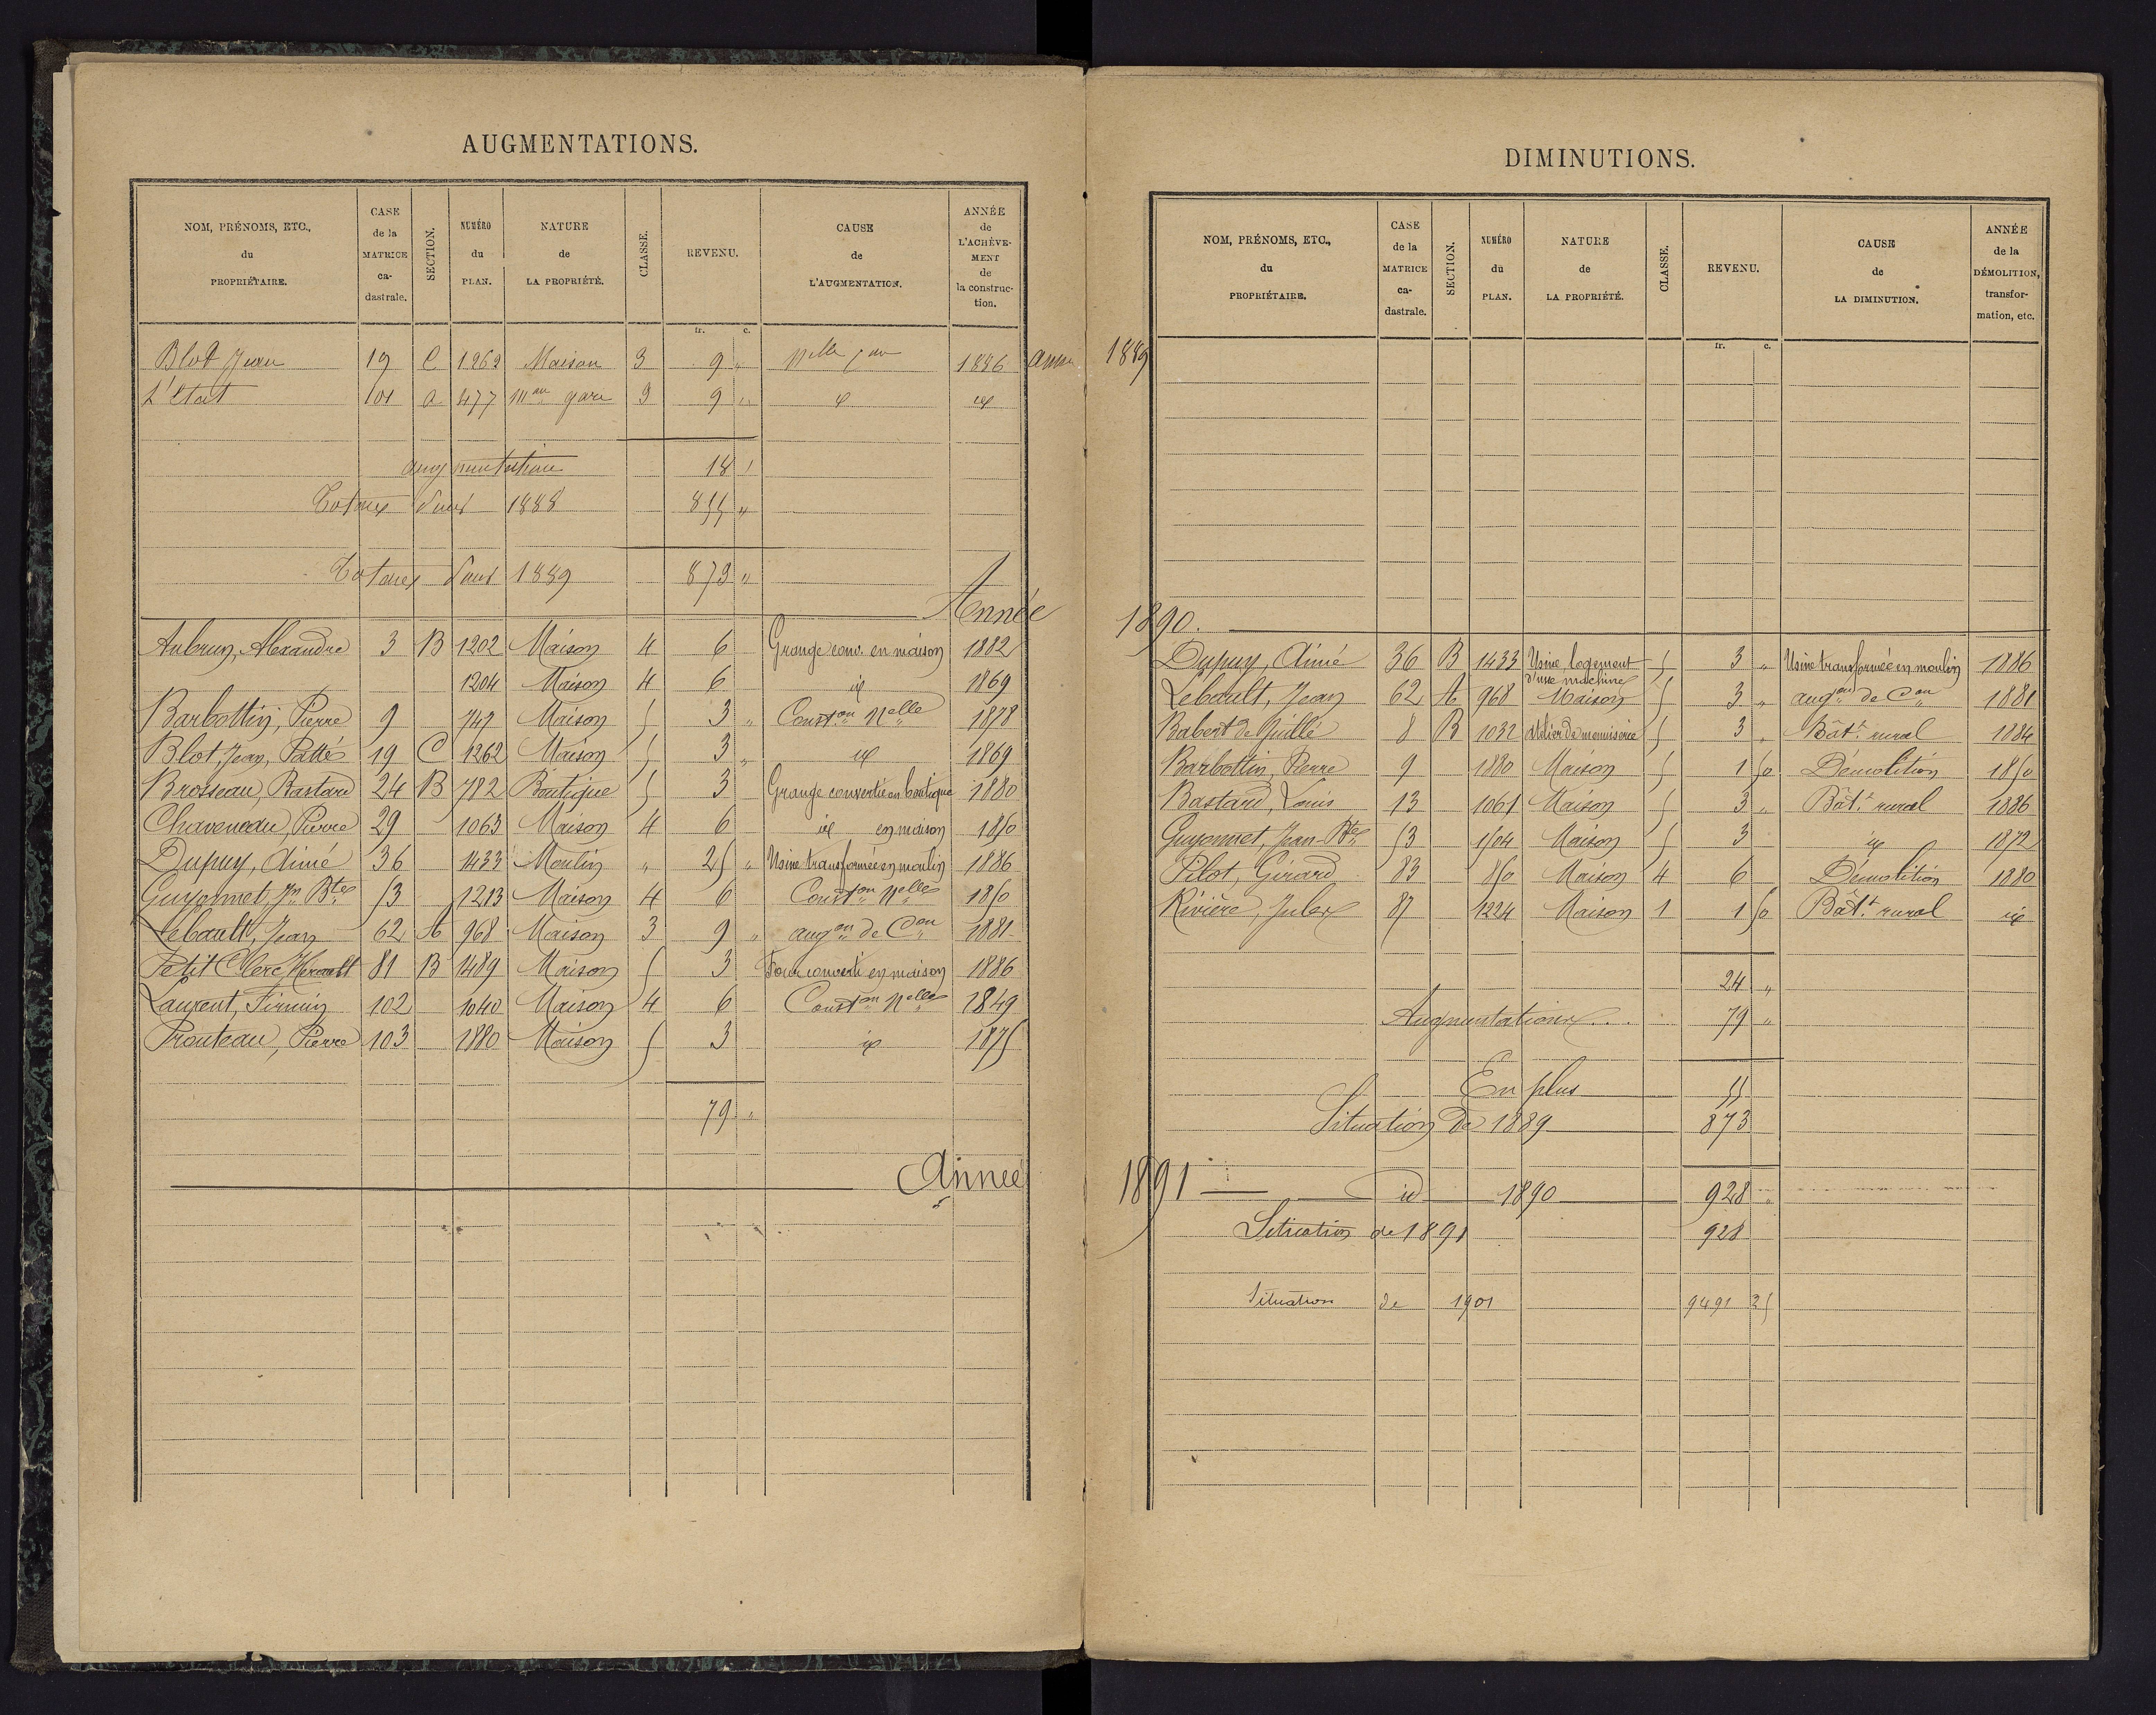 AUGMENTATIONS.
NOM, PRÉNOMS, ETC., du PROPRIÉTAIRE. CASE de la MATRICE ca- dastrale. SECTION. NUMÉRO du PLAN. NATURE de LA PROPRIÉTÉ. CLASSE. REVENU. CAUSE de L'AUGMENTATION. ANNÉE de L'ACHÈVE- MENT de la construc- tion.
fr. c.
Blot Jean 19 C 1262 Maison 3 9 " Nelle con 1886
L'Etat 101 a 477 mon gare 3 9 " id id
augmentation 18
Totaux dud 1888 855 "
Totaux dud 1889 873 "
Année
Aubrun, Alexandre 3 B 1202 Maison 4 6 Grange conv. en maison 1882
1204 Maison 4 6 id 1869
Barbottin, Pierre 9 747 Maison 5 3 " Conston Nelle 1878
Blot, Jean, Patté 19 C 1262 Maison 5 3 " id 1869
Brosseau, Bastard 24 B 782 Boutique 5 3 Grange convertie en boutique 1880
Chaveneau, Pierre 29 1063 Maison 4 6 id en maison 1850
Dupuy, Aimé 36 1433 Moulin " 25 " Usine transformée en moulin 1886
Guyonnet, Jn Bte 53 1213 Maison 4 6 Conston Nelle 1850
Lebault, Jean 62 A 968 Maison 3 9 " augon de Con 1881
Petit Clerc, Herault 81 B 1489 Maison 5 3 Four converti en maison 1886
Laurent, Firmin 102 1040 Maison 4 6 Conston Nelle 1849
Prouteau, Pierre 103 1880 Maison 5 3 id 1875
79 "
Année
DIMINUTIONS.
NOM, PRÉNOMS, ETC., du PROPRIÉTAIRE. CASE de la MATRICE ca- dastrale. SECTION. NUMÉRO du PLAN. NATURE de LA PROPRIÉTÉ. CLASSE. REVENU. CAUSE de LA DIMINUTION. ANNÉE de la DÉMOLITION, transfor- mation, etc.
fr. c.
1889
1890.
Dupuy, Aimé 36 B 1433 Usine logement d'une machine 5 3 " Usine transformée en moulin 1886
Lebault, Jean 62 A 968 Maison 5 3 " augon de Con 1881
Babert de Juillé 8 B 1032 Atelier de menuiserie 5 3 " Bâtt rural 1884
Barbottin, Pierre 9 1880 Maison 5 1 50 Démolition 1850
Bastard, Louis 13 1061 Maison 5 3 " Bâtt rural 1886
Guyonnet, Jean-Bte 53 1504 Maison 5 3 id 1872
Pilot, Girard 83 850 Maison 4 6 Démolition 1880
Rivière, Jules 87 1224 Maison 1 1 50 Bâtt rural id
24 "
Augmentations... 79 "
En plus 55
Situation de 1889 873
1891 id 1890 928 "
Situation de 1891 928
Situation de 1901 9491 25